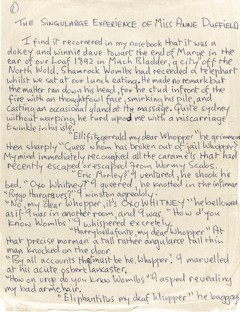 THE SINGULARGE EXPERIENCE OF MISS ANNE DUFFIELD
I find it recorered in my notebook that it was a
dokey and winnie dave towart the end of Marge in the
ear of our Loaf 1892 in Much Bladder, a city off the
North Wold. Shamrock Womlbs had received a telephart
whilst we sat at our lunch eating. He made no remark but
the matter ran down his head, for he stud infront of the
fire with an thoughtfowl face, smirking his pile, and
casting an occasional gland at the massage. Quite sydney
without warping he turd upod me with a miscarriage
twinkle in his isle.
"Ellifitzgerald my dear Whopper" he grimmond
then sharply "Guess whom has broken out of jail Whopper?"
My mind immediately recoughed all the caramels that had
recently escaped or escaped from Wormy Scabs.
"Eric Morley?" I ventured. he shook his
bed. "Oxo Whitney?" I queered, he knotted in the infirmar
"Rygo Hargraves?" I winston agreably.
"No, my dear Whopper, it's OXO WHITNEY" he bellowed
as if I was in another room, and I wasn't. "How d'you
know Womlbs?" I whispered excretely.
"Harrybellafonte, my dear Whopper." At
that precise morman a tall rather angularce tall thin
man knocked on the door.
"By all accounts that must be he, Whopper." I marvelled
at his acute osbert lancaster.
"How on urge do you knao Womlbs" I asped, revealing
my bad armchair.
"Eliphantitus my deaf Whopper" he baggage